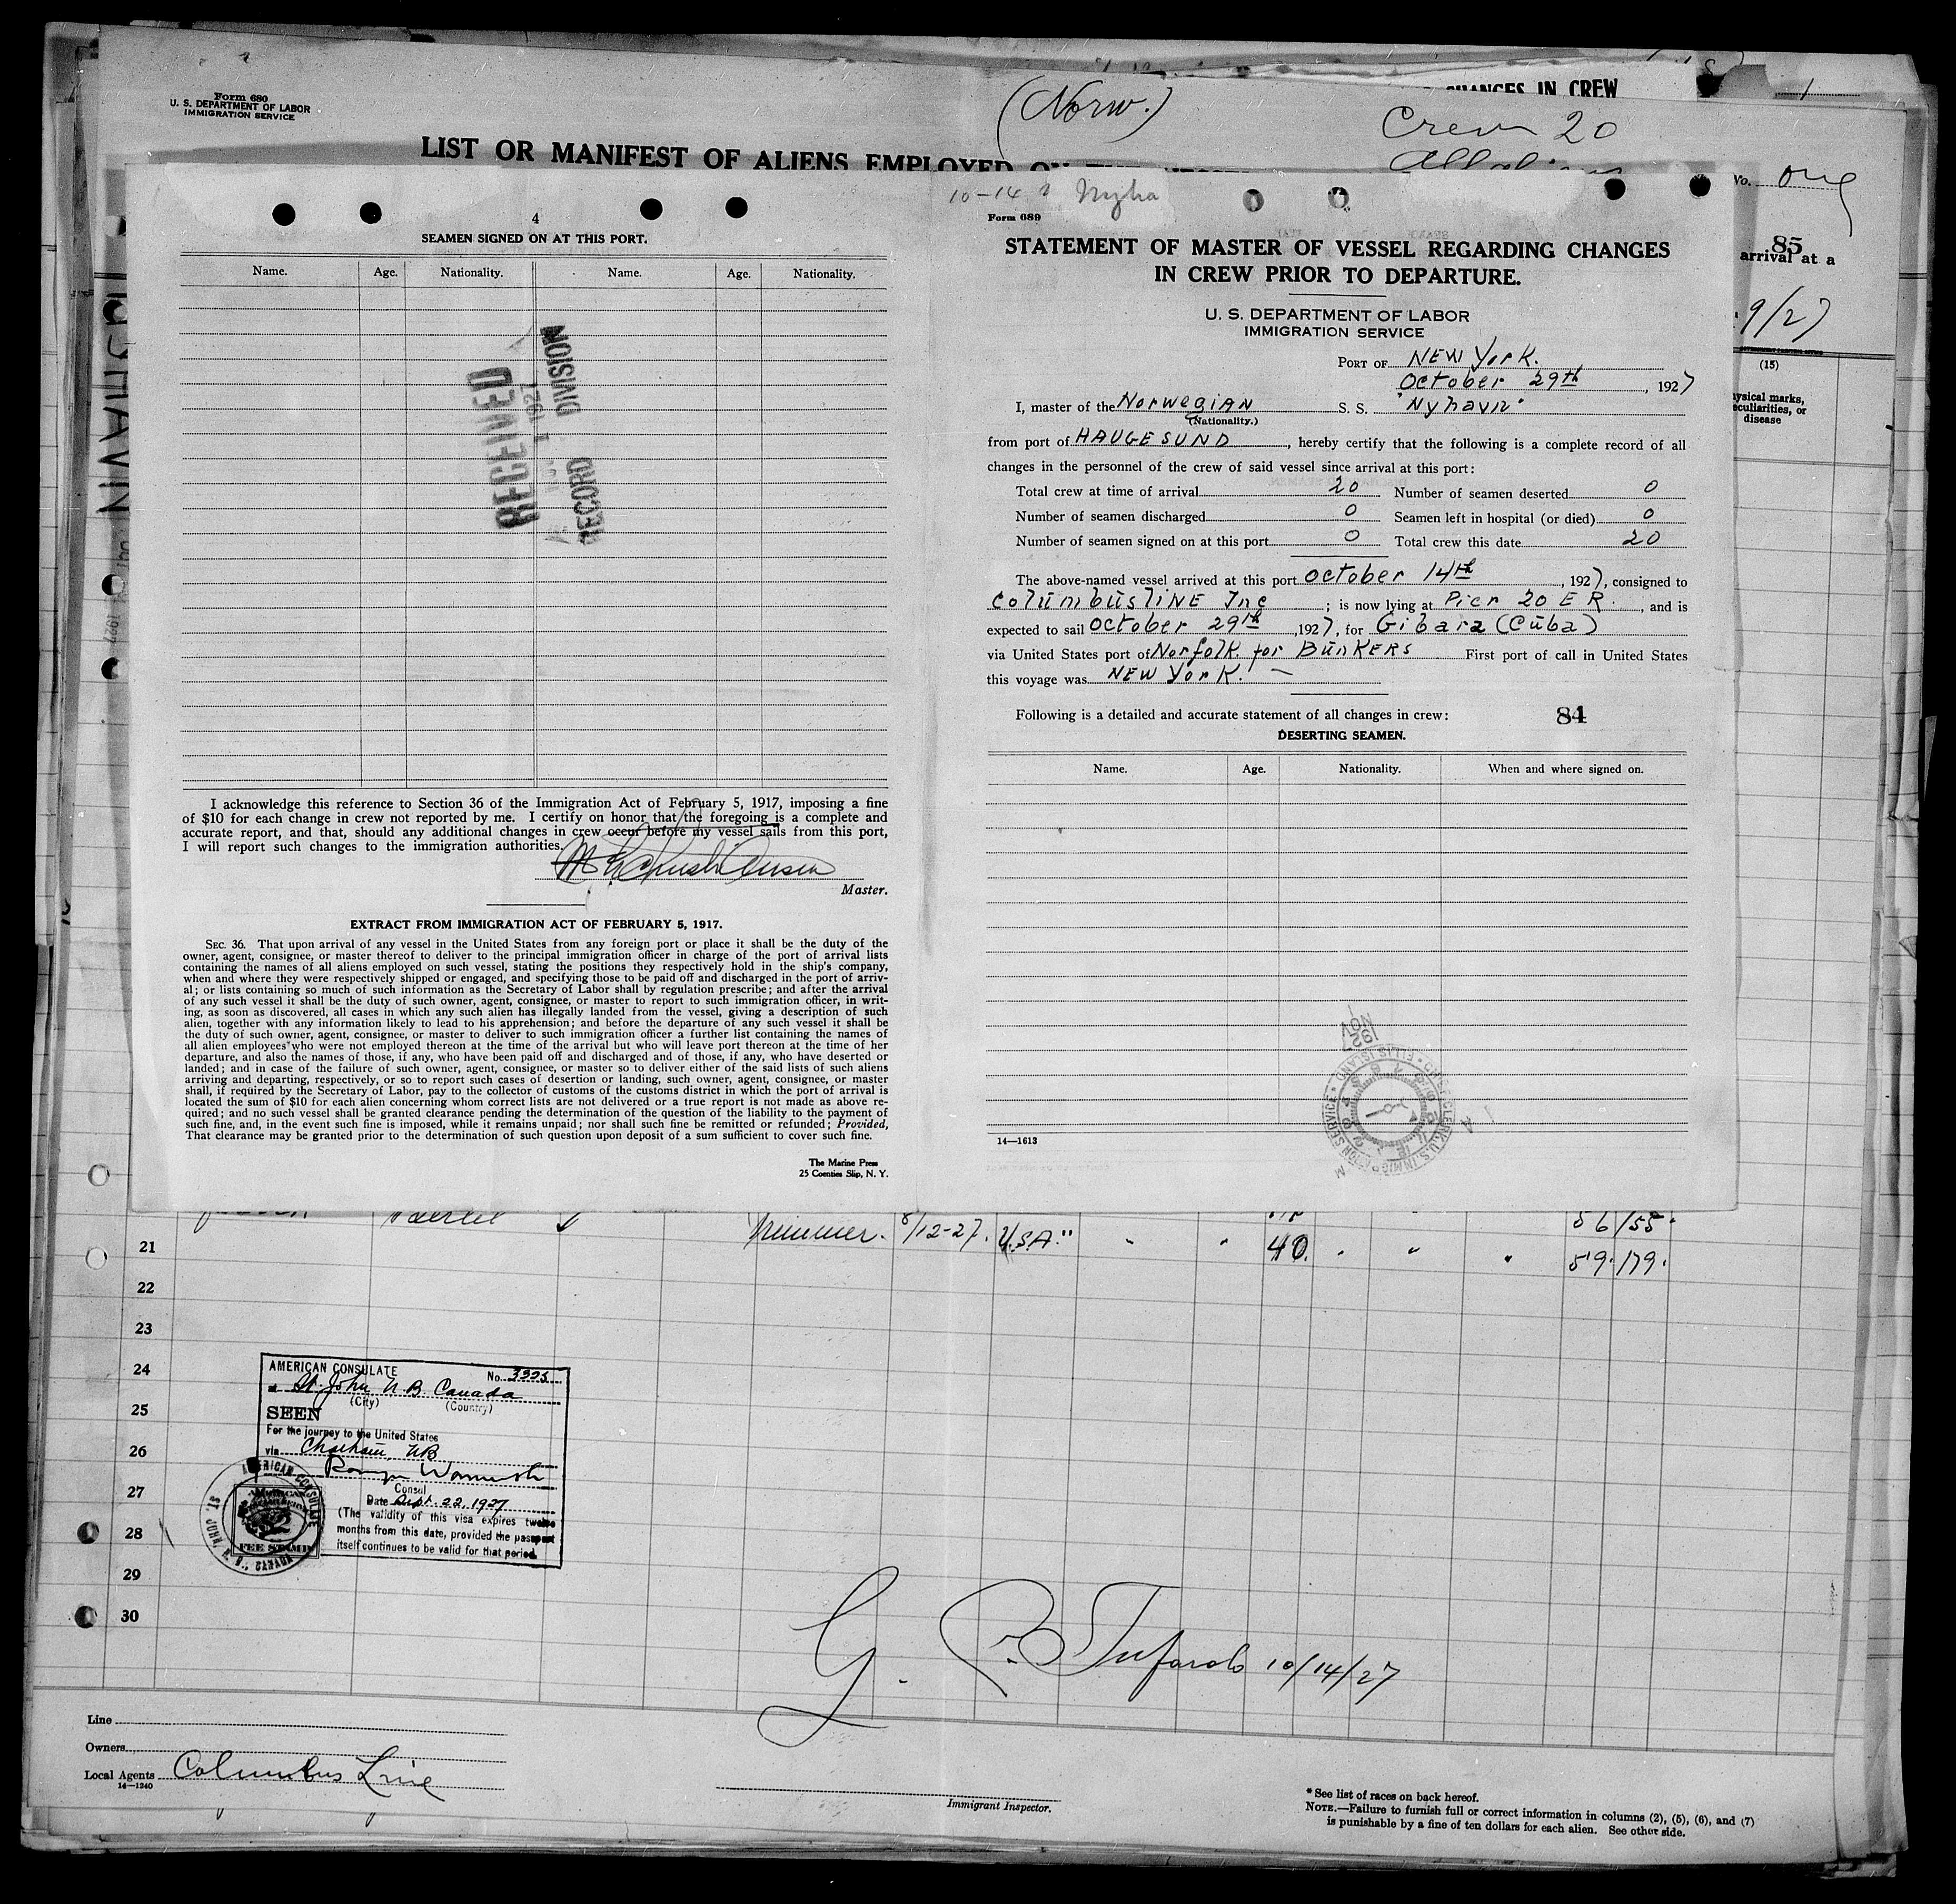 Form 680
U. S. DEPARTMENT OF LABOR
IMMIGRATION SERVICE
(Norw.)
CHANGES IN CREW
Crew 20
LIST OR MANIFEST OF ALIENS EMPLOYED ON
No. one
85
arrival at a
9/27
(15)
Physical marks,
peculiarities, or
disease
4
SEAMEN SIGNED ON AT THIS PORT.
Name. Age. Nationality. Name. Age. Nationality.
RECEIVED
1927
RECORD DIVISION
I acknowledge this reference to Section 36 of the Immigration Act of February 5, 1917, imposing a fine
of $10 for each change in crew not reported by me. I certify on honor that the foregoing is a complete and
accurate report, and that, should any additional changes in crew occur before my vessel sails from this port,
I will report such changes to the immigration authorities.
Master.
EXTRACT FROM IMMIGRATION ACT OF FEBRUARY 5, 1917.
SEC. 36. That upon arrival of any vessel in the United States from any foreign port or place it shall be the duty of the
owner, agent, consignee, or master thereof to deliver to the principal immigration officer in charge of the port of arrival lists
containing the names of all aliens employed on such vessel, stating the positions they respectively hold in the ship's company,
when and where they were respectively shipped or engaged, and specifying those to be paid off and discharged in the port of arriv-
al; or lists containing so much of such information as the Secretary of Labor shall by regulation prescribe; and after the arrival
of any such vessel it shall be the duty of such owner, agent, consignee, or master to report to such immigration officer, in writ-
ing, as soon as discovered, all cases in which any such alien has illegally landed from the vessel, giving a description of such
alien, together with any information likely to lead to his apprehension; and before the departure of any such vessel it shall be
the duty of such owner, agent, consignee, or master to deliver to such immigration officer a further list containing the names of
all alien employees who were not employed thereon at the time of the arrival but who will leave port thereon at the time of her
departure, and also the names of those, if any, who have been paid off and discharged and of those, if any, who have deserted or
landed; and in case of the failure of such owner, agent, consignee, or master so to deliver either of the said lists of such aliens
arriving and departing, respectively, or so to report such cases of desertion or landing, such owner, agent, consignee, or master
shall, if required by the Secretary of Labor, pay to the collector of customs of the customs district in which the port of arrival is
located the sum of $10 for each alien concerning whom correct lists are not delivered or a true report is not made as above re-
quired; and no such vessel shall be granted clearance pending the determination of the question of the liability to the payment of
such fine, and, in the event such fine is imposed, while it remains unpaid; nor shall such fine be remitted or refunded; Provided,
That clearance may be granted prior to the determination of such question upon deposit of a sum sufficient to cover such fine.
The Marine Press
25 Coenties Slip, N. Y.
10-14 Nyha
Form 689
STATEMENT OF MASTER OF VESSEL REGARDING CHANGES
IN CREW PRIOR TO DEPARTURE.
U. S. DEPARTMENT OF LABOR
IMMIGRATION SERVICE
PORT OF NEW York.
October 29th, 1927
I, master of the NorwegiAN S. S. "Nyhavn"
(Nationality.)
from port of HAUGESUND, hereby certify that the following is a complete record of all
changes in the personnel of the crew of said vessel since arrival at this port:
Total crew at time of arrival 20 Number of seamen deserted 0
Number of seamen discharged 0 Seamen left in hospital (or died) 0
Number of seamen signed on at this port 0 Total crew this date 20
The above-named vessel arrived at this port october 14th, 1927, consigned to
ColumbusliNE Inc; is now lying at Pier 20 E R., and is
expected to sail October 29th, 1927, for Gibara (Cuba)
via United States port of Norfolk for BunKERS First port of call in United States
this voyage was NEW York. —
Following is a detailed and accurate statement of all changes in crew: 84
DESERTING SEAMEN.
Name. Age. Nationality. When and where signed on.
NOV
1927
14—1613
Trimmer. 8/12-27. U.S.A." " " 40. " " " 56/155.
21 59. 179.
22
23
24
25
26
27
28
29
30
AMERICAN CONSULATE No. 3325
at St. John N.B. Canada
(City) (Country)
SEEN
For the journey to the United States
via Chatham NB
Consul
Date Sept. 22, 1927
(The validity of this visa expires twelve
months from this date, provided the passport
itself continues to be valid for that period.
AMERICAN CONSULATE
ST. JOHN N. B., CANADA
FEE STAMP
10/14/27
Line
Owners
Local Agents Columbus Line
14—1240
Immigrant Inspector.
* See list of races on back hereof.
NOTE.—Failure to furnish full or correct information in columns (2), (5), (6), and (7)
is punishable by a fine of ten dollars for each alien. See other side.